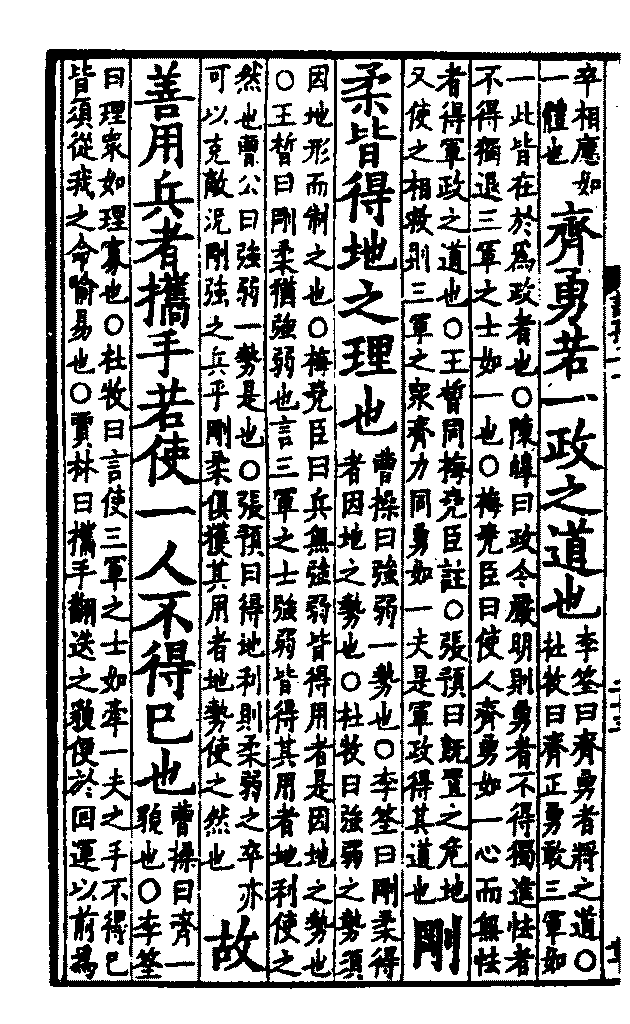 卒相應如
一體也
齊勇若一政之道也
李筌曰齊勇者將之道〇
杜牧曰齊正勇敢三軍如
一此皆在於爲政者也〇陳皥曰政令嚴明則勇者不得獨進怯者
不得獨退三軍之士如一也〇梅堯臣曰使人齊勇如一心而無怯
者得軍政之道也〇王晳同梅堯臣註〇張預曰旣置之危地
又使之相救則三軍之衆齊力同勇如一夫是軍政得其道也
剛
柔皆得地之理也
曹操曰強弱一勢也〇李筌曰剛柔得
者因地之勢也〇杜牧曰強弱之勢須
因地形而制之也〇梅堯臣曰兵無強弱皆得用者是因地之勢也
〇王晳曰剛柔猶強弱也言三軍之士強弱皆得其用者地利使之
然也曹公曰強弱一勢是也〇張預曰得地利則柔弱之卒亦
可以克敵況剛強之兵乎剛柔俱獲其用者地勢使之然也
故
善用兵者攜手若使一人不得已也
曹操曰齊一
貌也〇李筌
曰理衆如理寡也〇杜牧曰言使三軍之士如牽一夫之手不得已
皆須從我之命喻易也〇賈林曰攜手翻迭之貌便於回運以前爲